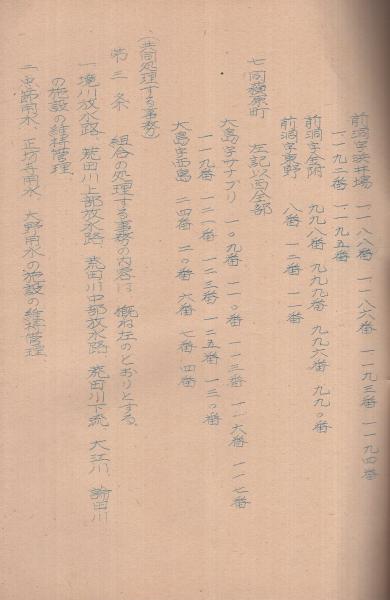 前洞字浜井場 一一八八番 一一八六番 一一九三番 一一九四番
一一九二番 一一九五番
前洞字金附 九九八番 九九九番 九九六番 九九〇番
前洞字東野 八番 一二番 一一番
七 同 原町 左記以西全部
大島字サナブリ 一〇九番 一一〇番 一一三番 一一六番 一一七番
一一九番 一二一番 一二三番 一二五番 一三〇番
大島字西島 二四番 二〇番 六番 七番 四番
(共同処理する事務)
第三条 組合の処理する事務の内容は 概ね左のとおりとする、
一、境川放水路、荒田川上部放水路、荒田川中部放水路、荒田川下流、大江川、論田川
の施設の維持管理、
二、 用水、正坊寺用水、大野用水の施設の維持管理、